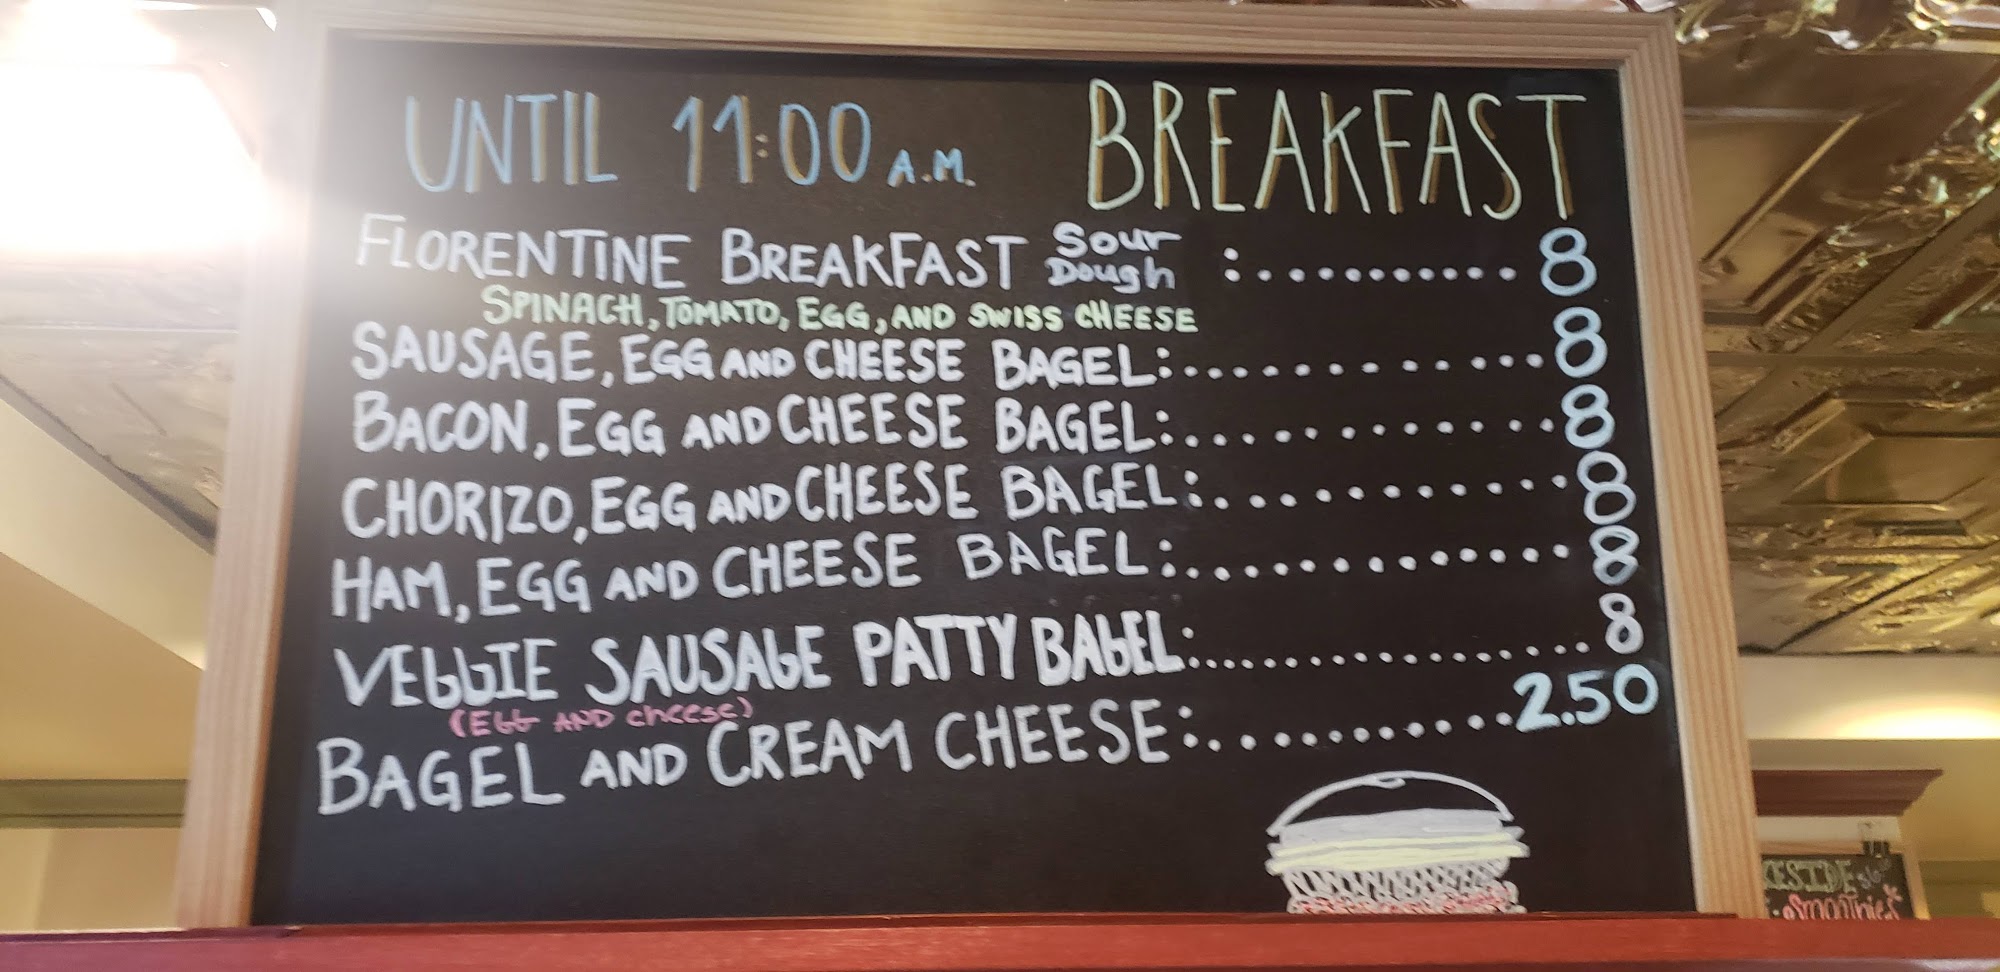 UNTIL 11:00 A.M. BREAKFAST
FLORENTINE BREAKFAST Sour Dough :.......... 8
SPINACH, TOMATO, EGG, AND SWISS CHEESE
SAUSAGE, EGG AND CHEESE BAGEL:............. 8
BACON, EGG AND CHEESE BAGEL:............. 8
CHORIZO, EGG AND CHEESE BAGEL:............ 8
HAM, EGG AND CHEESE BAGEL:............. 8
VEGGIE SAUSAGE PATTY BAGEL:................. 8
(EGG AND cheese)
BAGEL AND CREAM CHEESE:........... 2.50
Smoothies